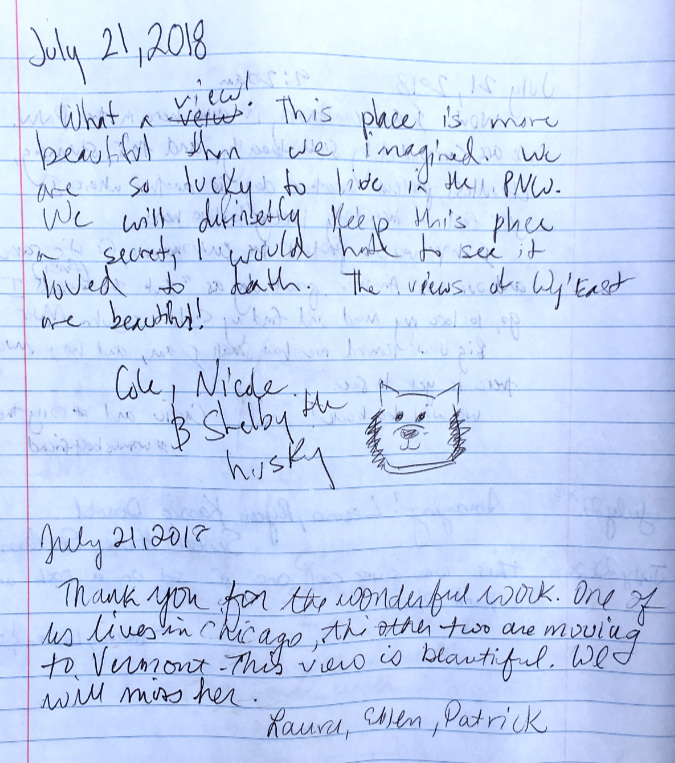 July 21, 2018
view!
What a view This place is more
beautiful than we imagined. We
are so lucky to live in the PNW.
We will definetly keep this place
a secret, I would hate to see it
loved to death. The views of Wy'East
are beautiful!
Cole, Nicole
& Shelby the
husky
July 21, 2018
Thank you for the wonderful work. One of
us lives in Chicago, the other two are moving
to Vermont - This view is beautiful. We
will miss her.
Laura, Ellen, Patrick